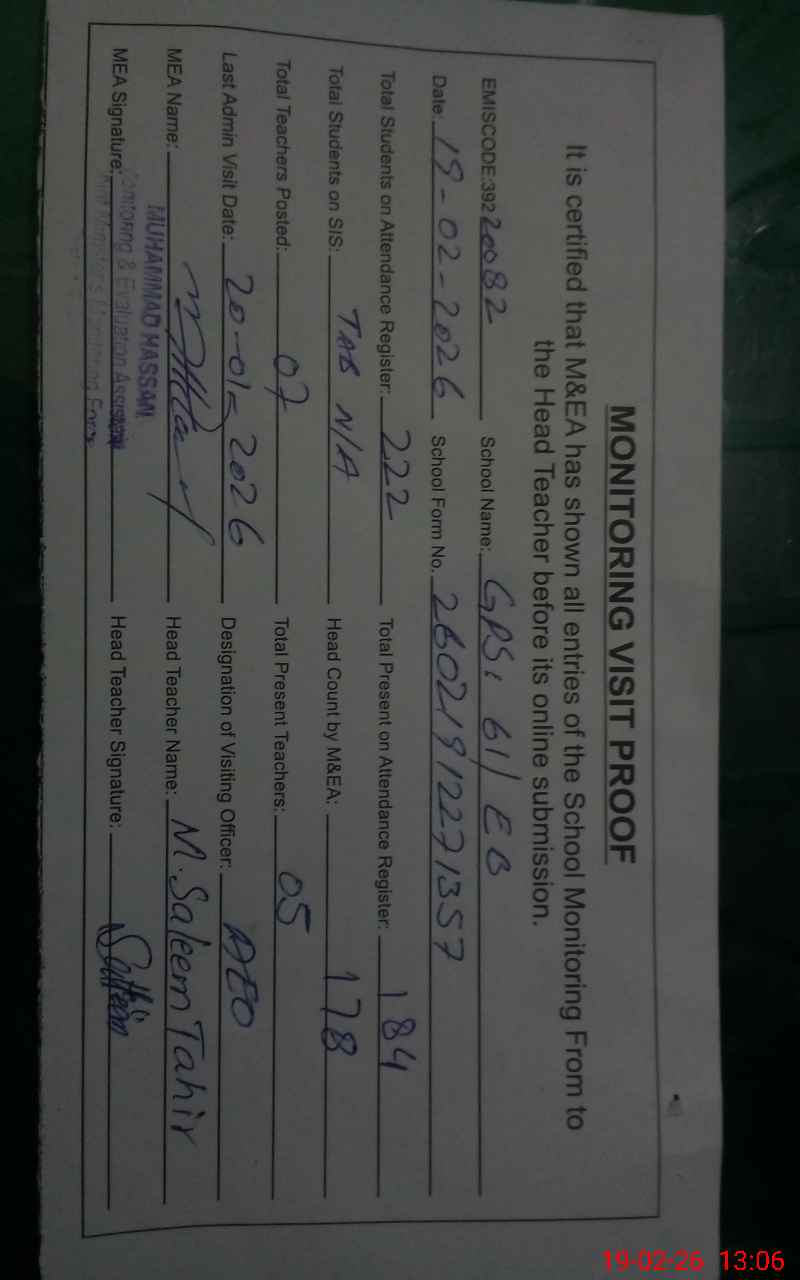 MONITORING VISIT PROOF
It is certified that M&EA has shown all entries of the School Monitoring From to
the Head Teacher before its online submission.
EMISCODE:39220082 School Name: GPS: 61/EB
Date: 19-02-2026 School Form No. 26021912271357
Total Students on Attendance Register: 222 Total Present on Attendance Register: 184
Total Students on SIS: TAB N/A Head Count by M&EA: 178
Total Teachers Posted: 07 Total Present Teachers: 05
Last Admin Visit Date: 20-01-2026 Designation of Visiting Officer: AEO
MEA Name: Head Teacher Name: M. Saleem Tahir
MUHAMMAD HASSAN
MEA Signature: Head Teacher Signature: Saleem
Monitoring & Evaluation Assistant
Monitoring Force
19-02-26 13:06